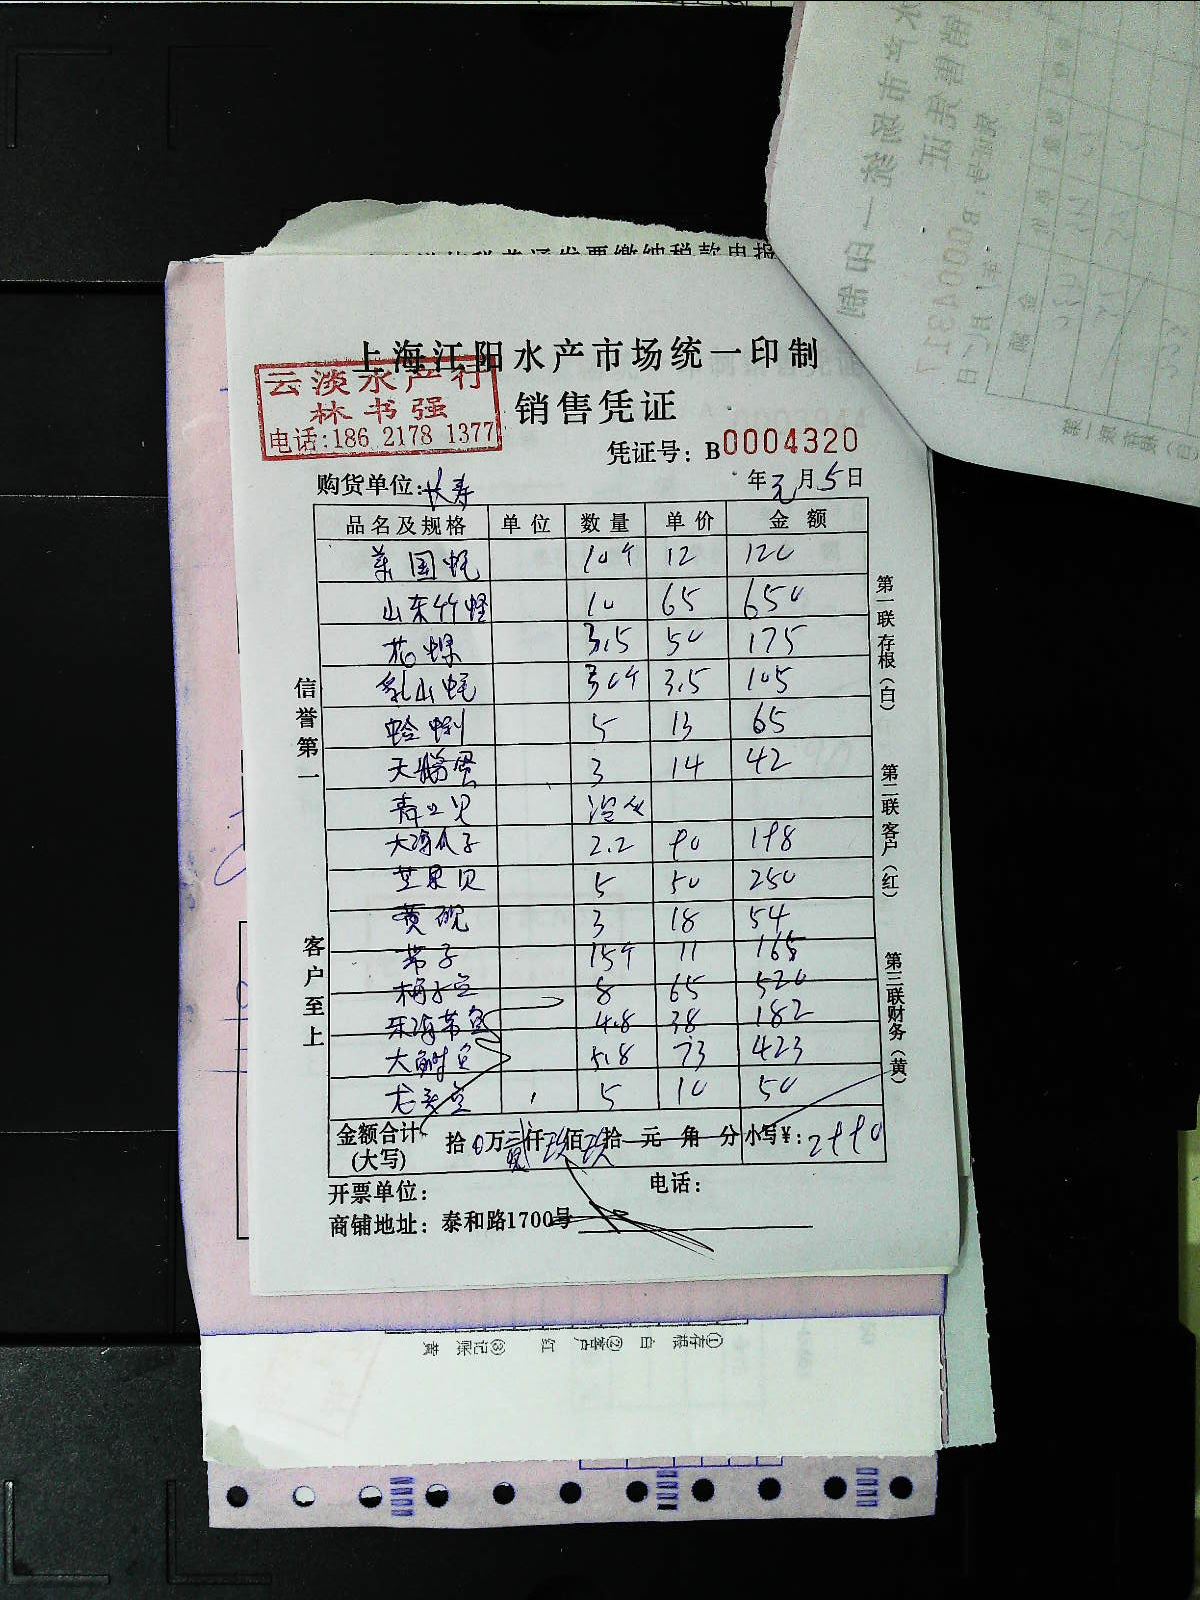 上海江阳水产市场统一印制
云淡水产行
林书强
电话:186 2178 1377
销售凭证
凭证号: B0004320
购货单位:长寿 年元月5日
品名及规格 单位 数量 单价 金额
美国蚝 10个 12 120
山东竹蛏 10 65 650
花螺 3.5 50 175
乳山蚝 30个 3.5 105
蛤蜊 5 13 65
天鹅蛋 3 14 42
青口贝
大海瓜子 2.2 90 198
芒果贝 5 50 250
黄蚬 3 18 54
带子 15个 11 165
梅子鱼 8 65 520
东海带鱼 4.8 38 182
大鲥鱼 5.8 73 423
龙头鱼 5 10 50
金额合计(大写) 拾0万贰仟玖佰玖拾元角分 小写¥: 2990
开票单位: 电话:
商铺地址: 泰和路1700号
信誉第一
客户至上
第一联存根(白)
第二联客户(红)
第三联财务(黄)
①存根 白 ②客户 红 ③记账 黄